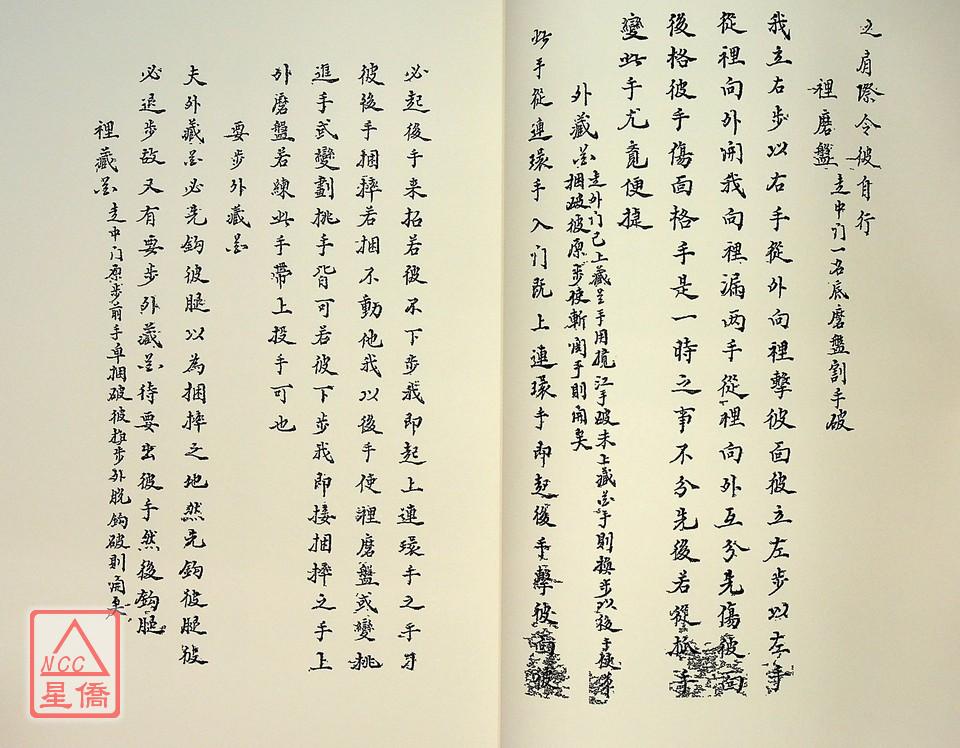 之肩際令彼自行
裡磨盤 走中门一名底磨盤割手破
我立右步以右手從外向裡擊彼面彼立左步以左手
從裡向外開我向裡漏两手從裡向外互分先傷彼面
後格彼手傷面格手是一時之事不分先後若從手
變此手尤竟便捷
外藏 走外门已上藏手用攬江手破未上藏手則換步以後手使
捆破彼原步使斬開手則開矣
此手從連環手入门既上連環手即起後手擊彼面彼
必起後手来招若彼不下步我即起上連環手之手
彼後手捆摔若捆不動他我以後手使裡磨盤或變挑
進手或變劃挑手皆可若彼下步我即接捆摔之手上
外磨盤若練此手帶上投手可也
要步外藏
夫外藏必先鈎彼腿以為捆摔之地然先鈎彼腿彼
必退步故又有要步外藏待要出彼手然後鈎腿
裡藏 走中门原步前手卓捆破彼換步外脱鈎破則開矣
NCC
星僑